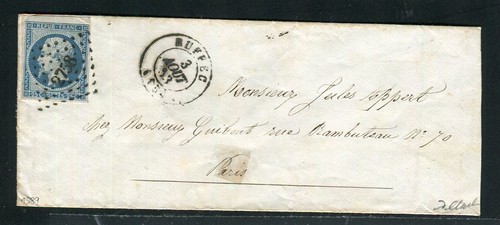 REPUB. FRANC.
2738
RUFFEC
3
AOUT
53
Monsieur Jules Appert
chez Monsieur Guibert rue Rambuteau N° 70
Paris